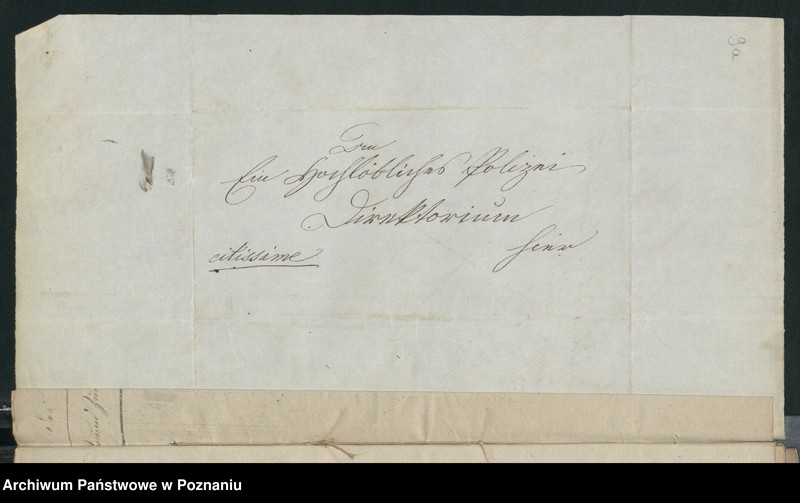 9a
Ein Hochlöbliches Polizei
Direktorium
hier
citissime
Archiwum Państwowe w Poznaniu